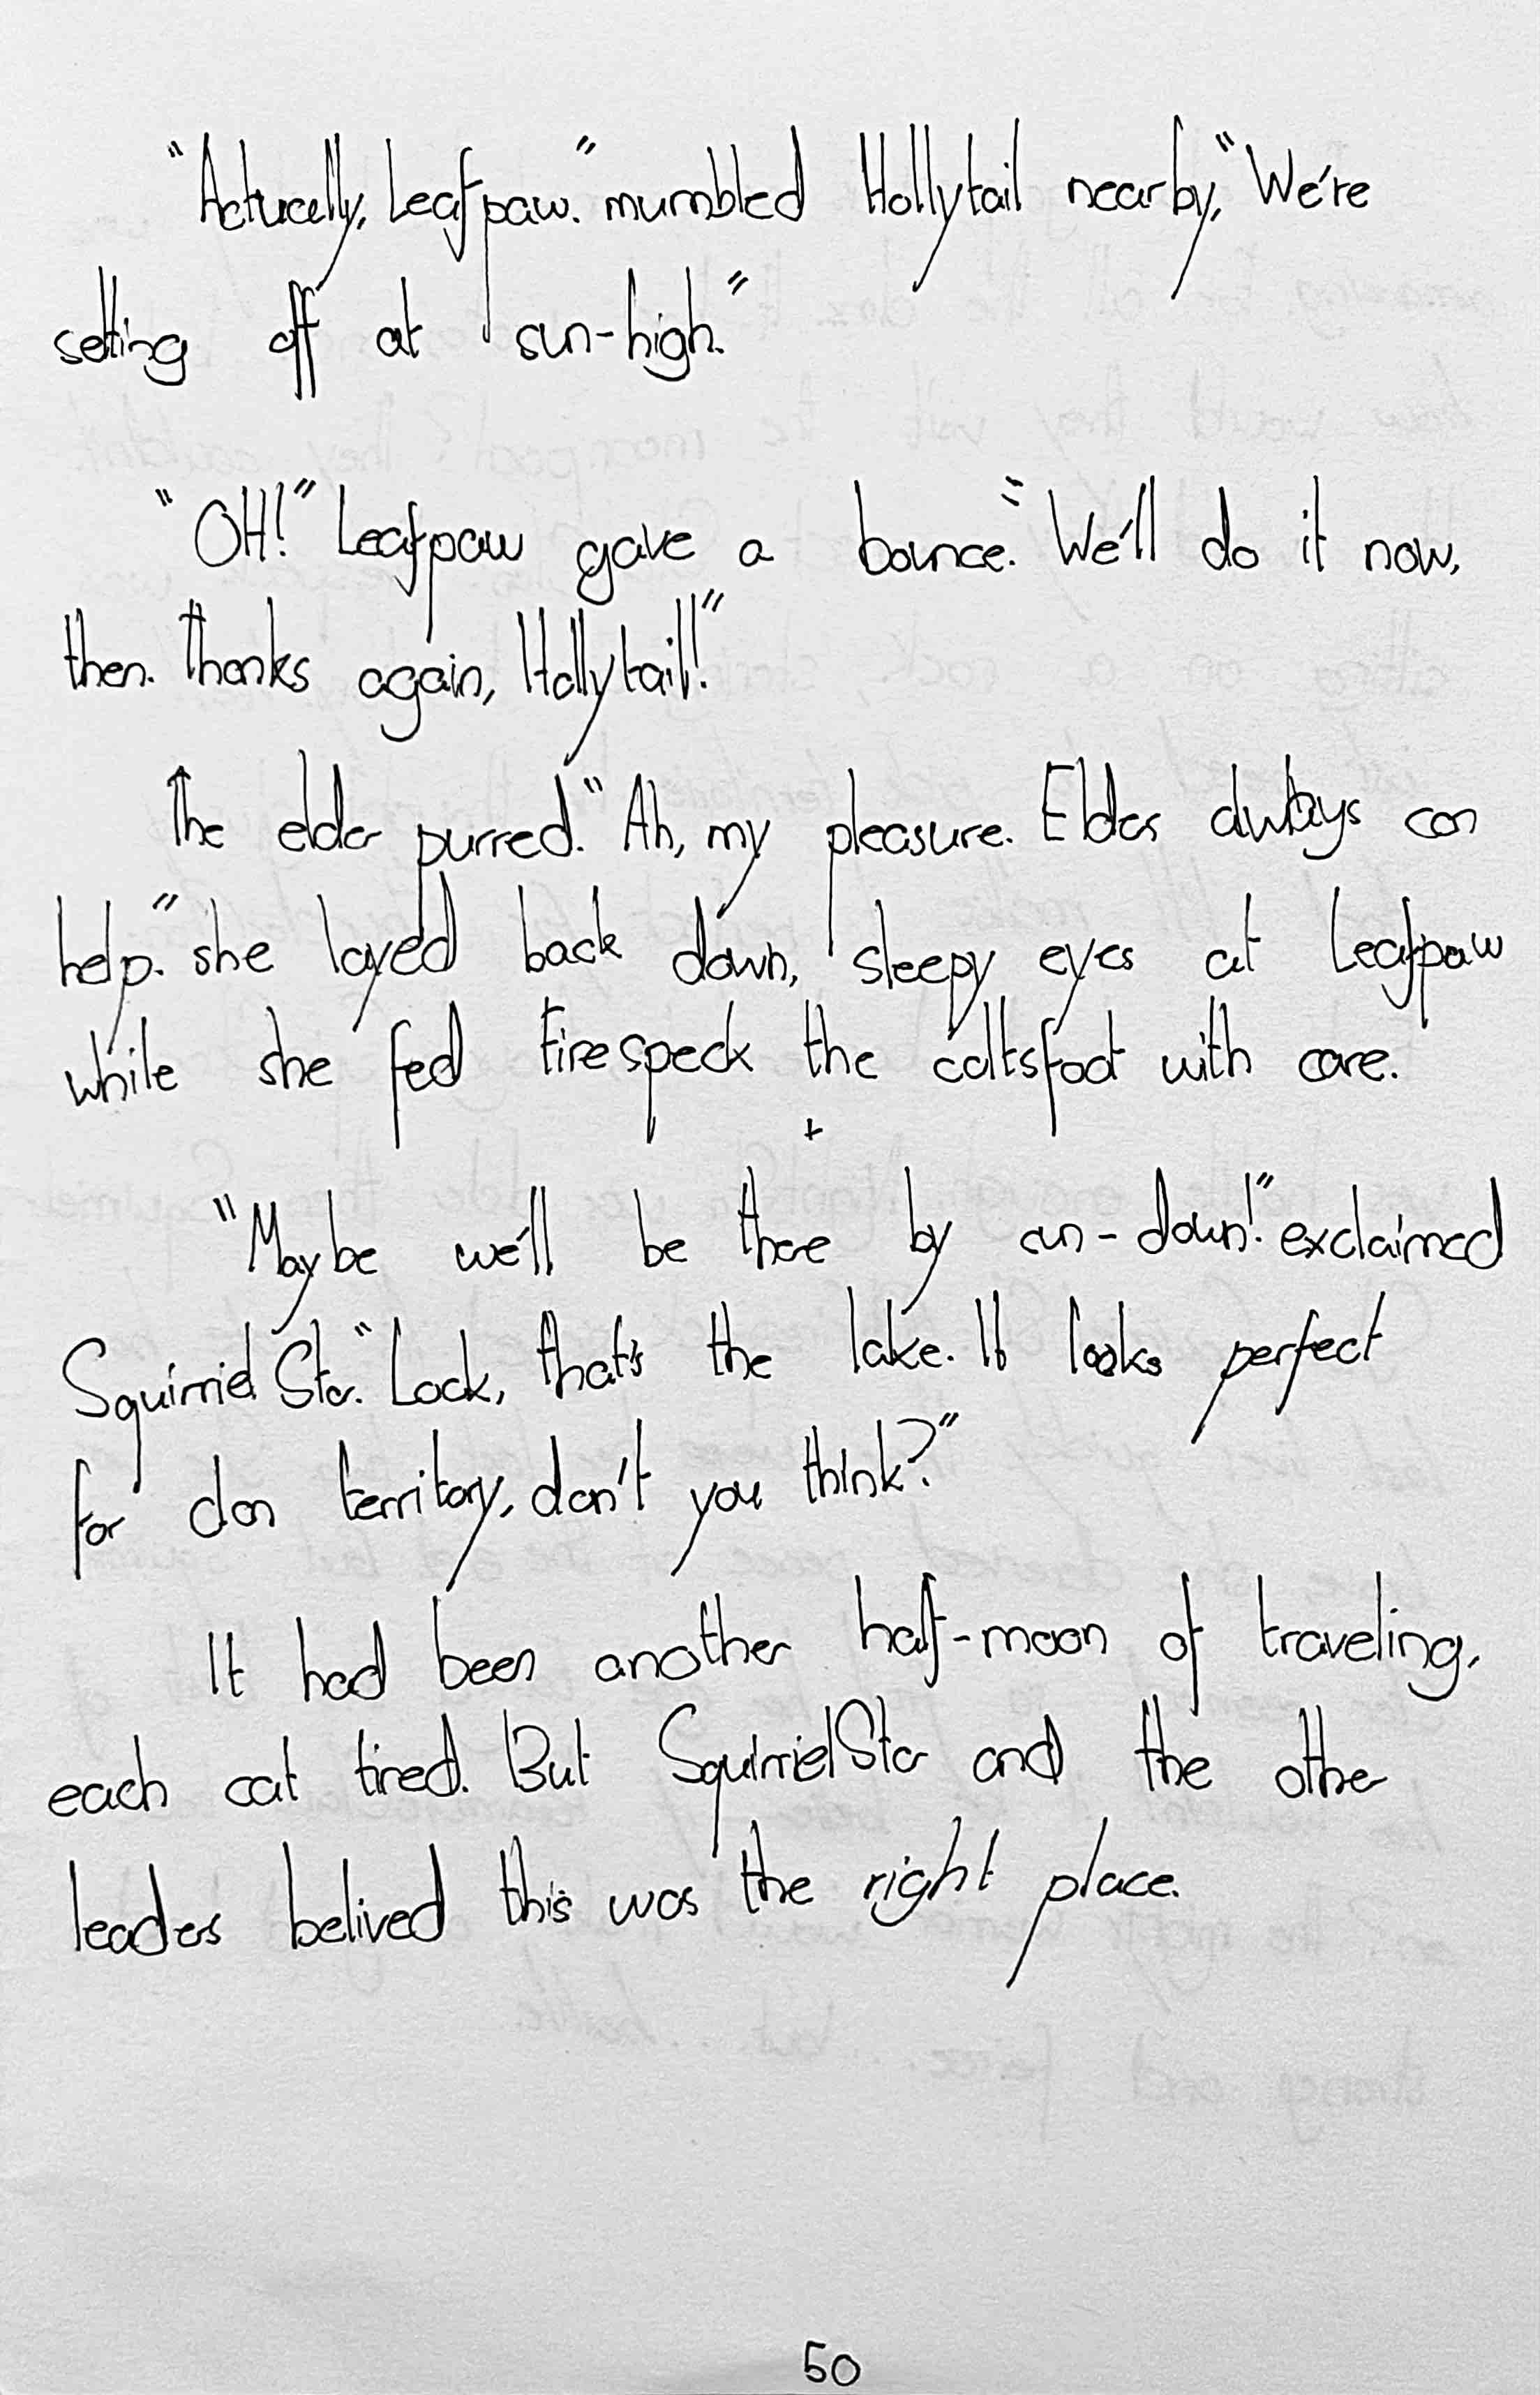 "Actucelly, Leafpaw." mumbled Hollytail nearby, "We're
setting off at sun-high."
"OH!" Leafpaw gave a bounce. "We'll do it now,
then. Thanks again, Hollytail!"
The elder purred. "Ah, my pleasure. Elders always can
help." she layed back down, sleepy eyes at Leafpaw
while she fed Firespeck the coltsfoot with care.
+
"Maybe we'll be there by sun-down!" exclaimed
SquirrielStar. "Look, that's the lake. It looks perfect
for clan territory, don't you think?"
It had been another half-moon of traveling,
each cat tired. But SquirrielStar and the other
leaders belived this was the right place.
50